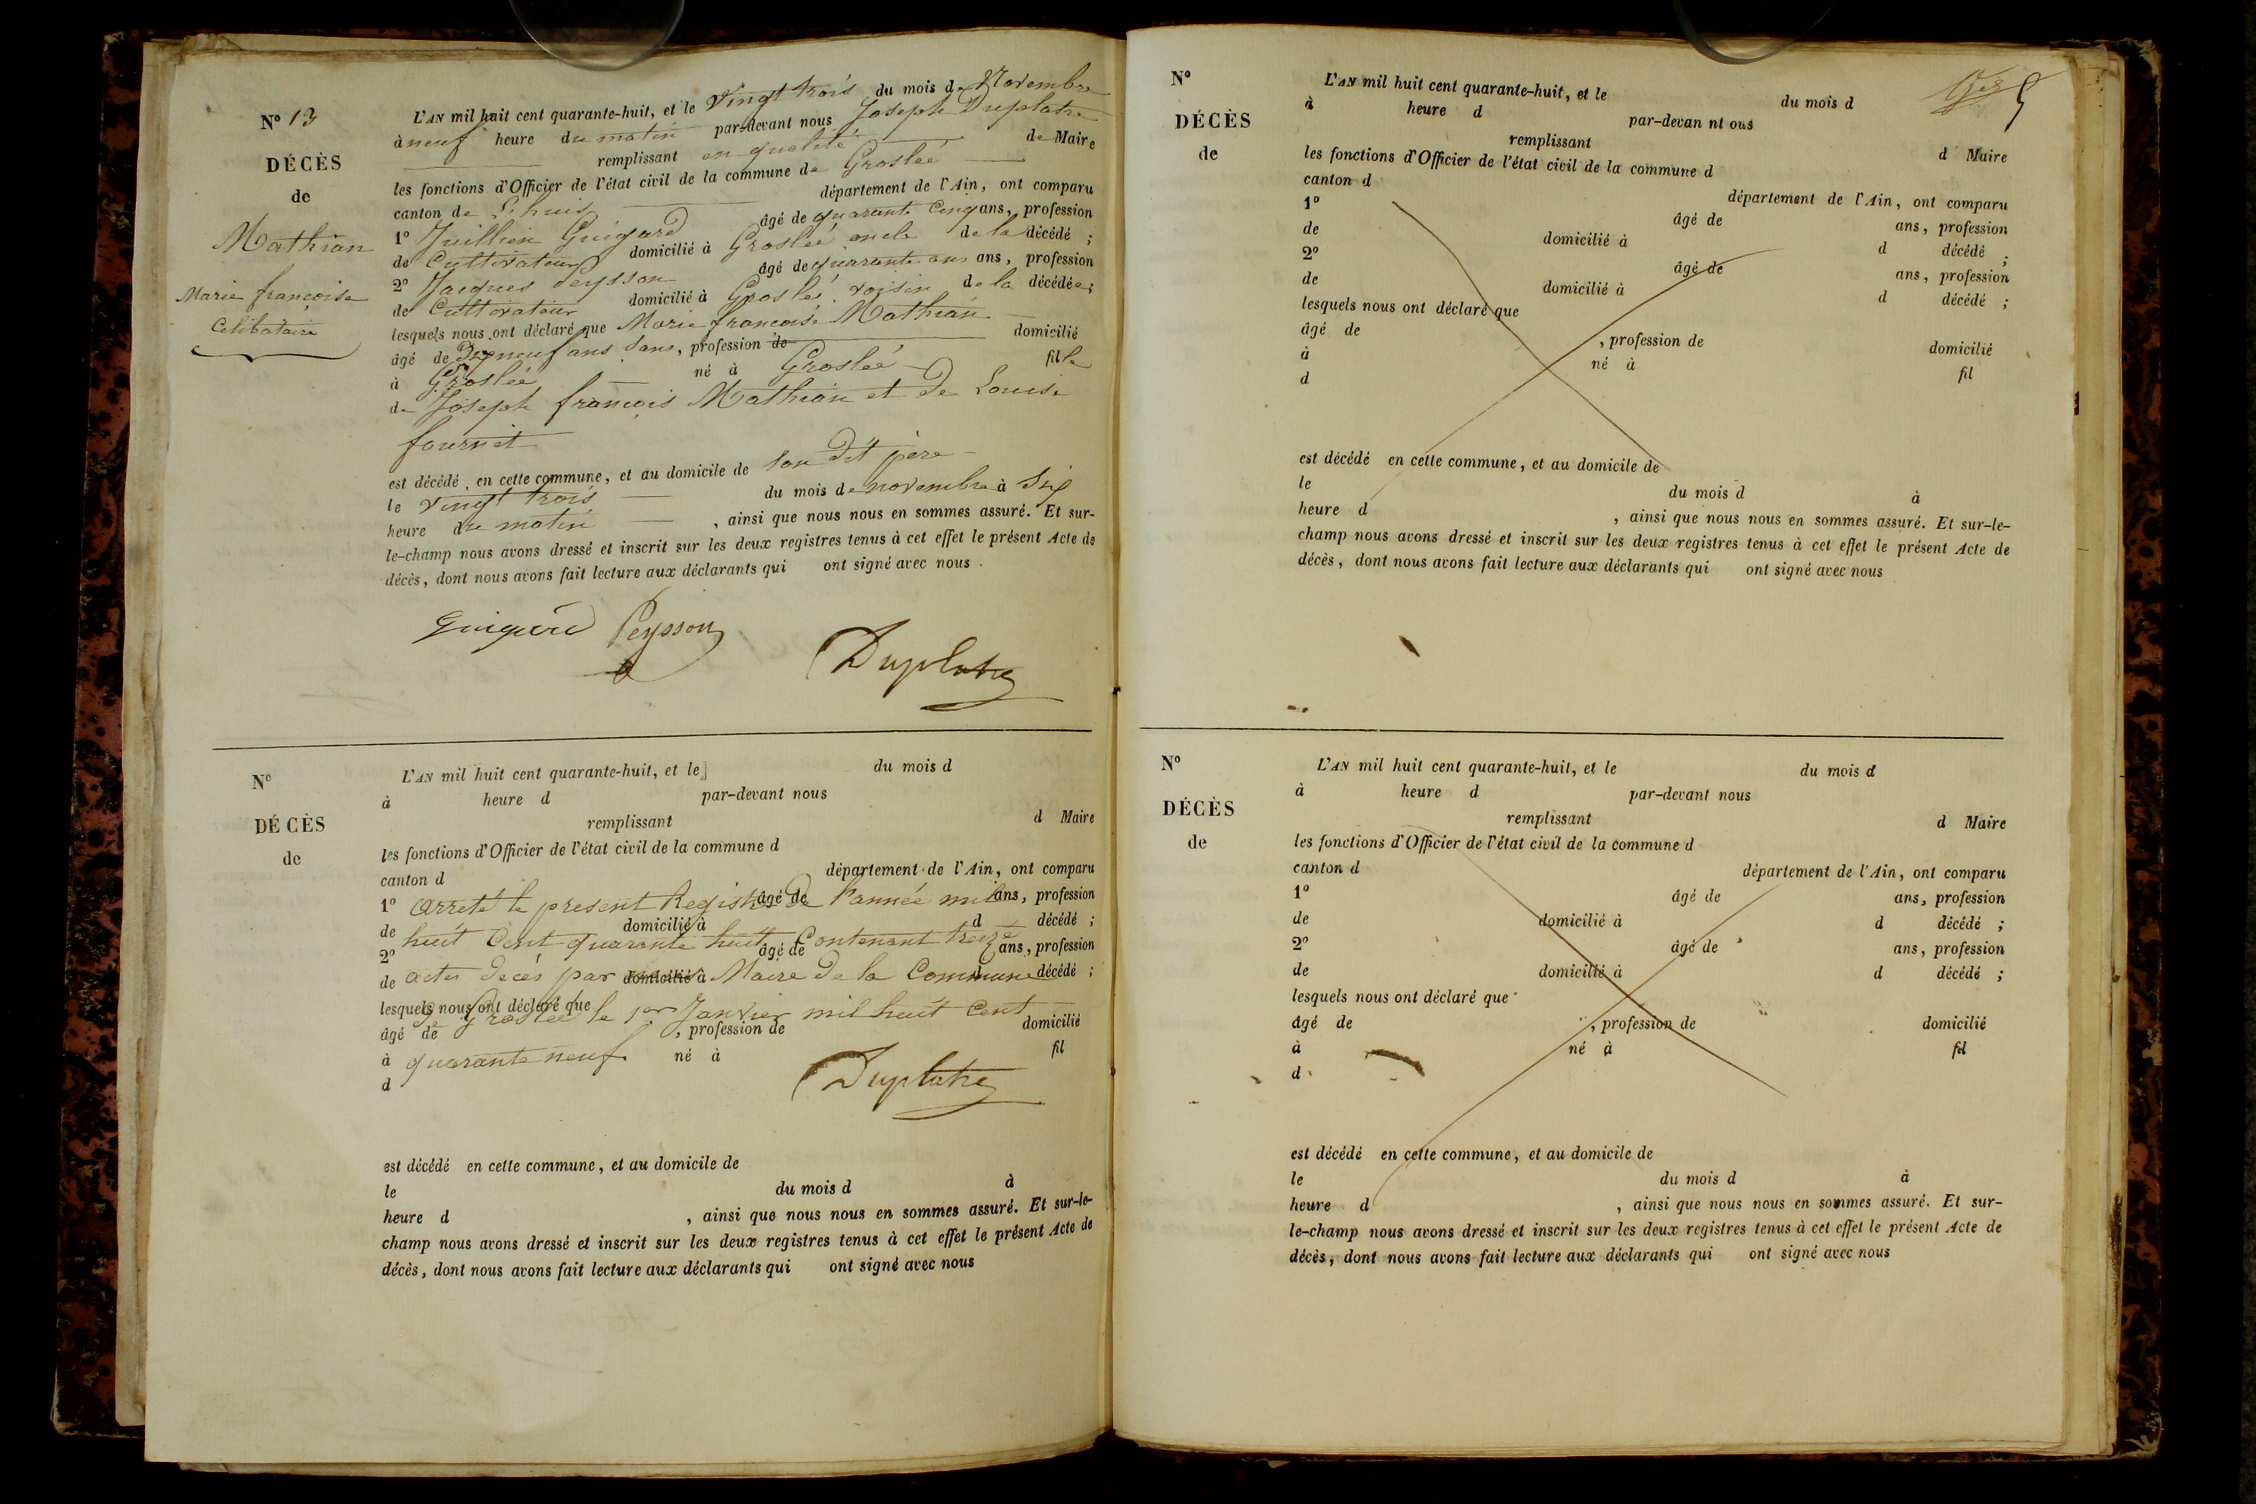 N° 13
DÉCÈS
de
Mathian
Marie françoise
Celibataire
L'AN mil huit cent quarante-huit, et le vingt trois du mois de Novembre
à neuf heure du matin par-devant nous Joseph Duplatre
remplissant en qualité de Maire
les fonctions d'Officier de l'état civil de la commune de Groslée
canton de Lhuis département de l'Ain, ont comparu
1° Juillien Guigard âgé de quarante cinq ans, profession
de Cultivateur domicilié à Groslée oncle de la décédé ;
2° Jacques Peysson âgé de quarante ans ans, profession
de Cultivateur domicilié à Groslée voisin de la décédée ;
lesquels nous ont déclaré que Marie francoise Mathian
âgé de Dixneuf ans sans, profession de domicilié
à Groslée né à Groslée fille
de Joseph francois Mathian et de Louise
fournet
est décédé en cette commune, et au domicile de son dit père
le vingt trois du mois de novembre à Six
heure du matin, ainsi que nous nous en sommes assuré. Et sur-
le-champ nous avons dressé et inscrit sur les deux registres tenus à cet effet le présent Acte de
décès, dont nous avons fait lecture aux déclarants qui ont signé avec nous.
Guigard Peysson
Duplatre
N°
DÉCÈS
de
L'AN mil huit cent quarante-huit, et le du mois d
à heure d par-devant nous
remplissant d Maire
les fonctions d'Officier de l'état civil de la commune d
canton d département de l'Ain, ont comparu
1° âgé de ans, profession
arreté le present Registre de l'année mil
de domicilié à d décédé ;
huit Cent quarante huit Contenant treize
2° âgé de ans, profession
de domicilié à d décédé ;
actes décés par Maire de la Commune
lesquels nous ont déclaré que
de Groslée le 1er Janvier mil huit Cent
âgé de , profession de domicilié
à né à fil
quarante neuf
d
Duplatre
est décédé en cette commune, et au domicile de
le du mois d à
heure d , ainsi que nous nous en sommes assuré. Et sur-le-
champ nous avons dressé et inscrit sur les deux registres tenus à cet effet le présent Acte de
décès, dont nous avons fait lecture aux déclarants qui ont signé avec nous
5
N°
DÉCÈS
de
L'AN mil huit cent quarante-huit, et le du mois d
à heure d par-devan nt ous
remplissant d Maire
les fonctions d'Officier de l'état civil de la commune d
canton d département de l'Ain, ont comparu
1° âgé de ans, profession
de domicilié à d décédé ;
2° âgé de ans, profession
de domicilié à d décédé ;
lesquels nous ont déclaré que
âgé de , profession de domicilié
à né à fil
d
est décédé en cette commune, et au domicile de
le du mois d à
heure d , ainsi que nous nous en sommes assuré. Et sur-le-
champ nous avons dressé et inscrit sur les deux registres tenus à cet effet le présent Acte de
décès, dont nous avons fait lecture aux déclarants qui ont signé avec nous
N°
DÉCÈS
de
L'AN mil huit cent quarante-huit, et le du mois d
à heure d par-devant nous
remplissant d Maire
les fonctions d'Officier de l'état civil de la commune d
canton d département de l'Ain, ont comparu
1° âgé de ans, profession
de domicilié à d décédé ;
2° âgé de ans, profession
de domicilié à d décédé ;
lesquels nous ont déclaré que
âgé de , profession de domicilié
à né à fil
d
est décédé en cette commune, et au domicile de
le du mois d à
heure d , ainsi que nous nous en sommes assuré. Et sur-
le-champ nous avons dressé et inscrit sur les deux registres tenus à cet effet le présent Acte de
décès, dont nous avons fait lecture aux déclarants qui ont signé avec nous